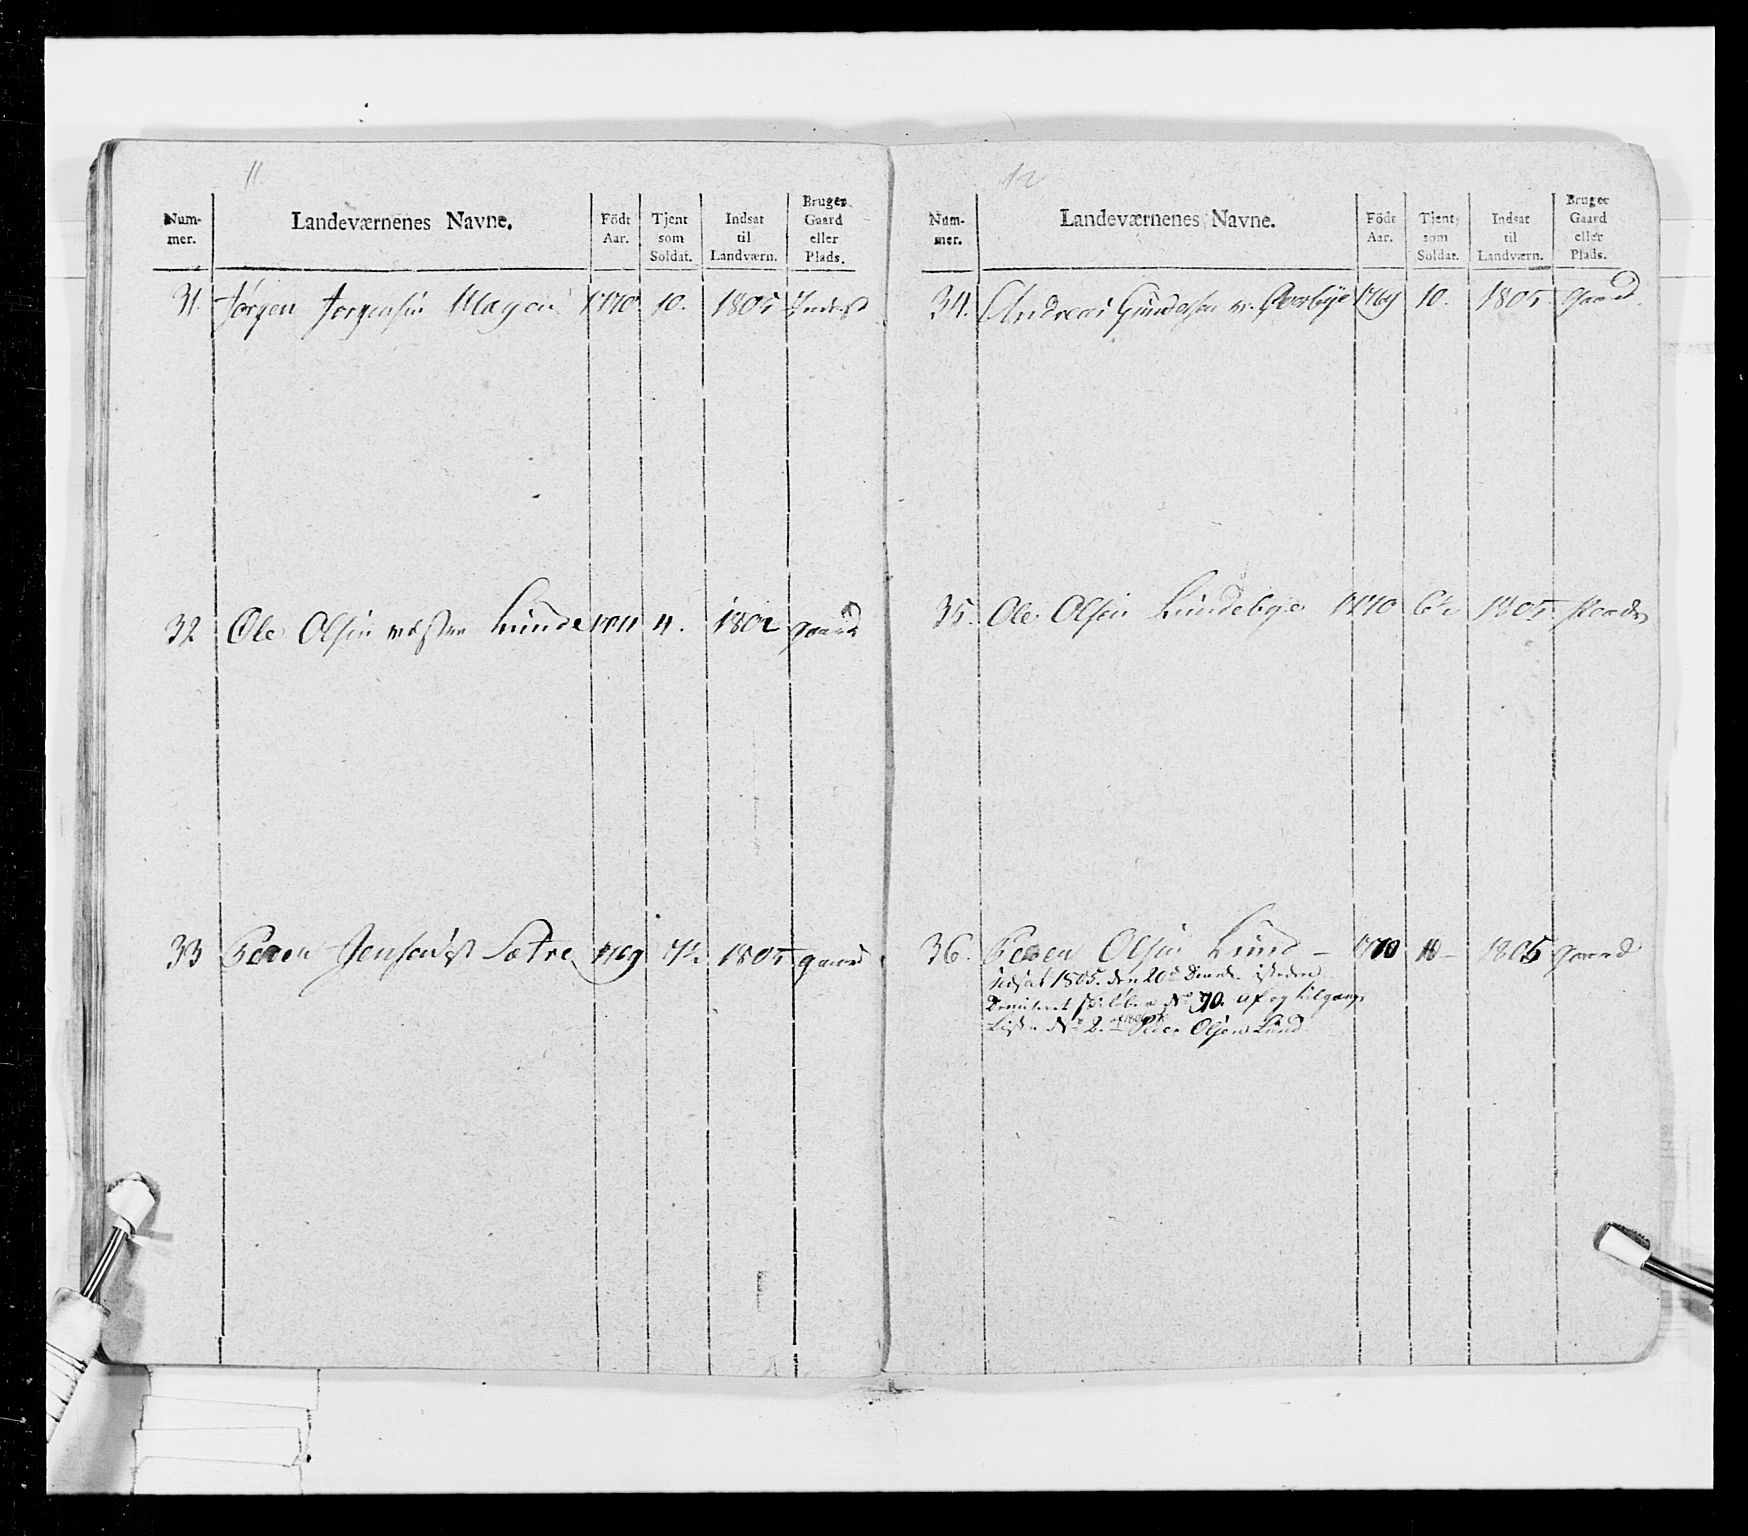 11
Num-
mer.
Landeværnenes Navne.
Födt
Aar.
Tjent
som
Soldat.
Indsat
til
Landværn.
Bruger
Gaard
eller
Plads.
31. Jørgen Jørgensen 1770. 10. 1805
32 Ole Olsen Lunde 1771 4. 1802 gaard
33 Peder Jensen Sætre 1769 1805 gaard
12
Num-
mer.
Landeværnenes Navne.
Födt
Aar.
Tjent
som
Soldat.
Indsat
til
Landværn.
Bruger
Gaard
eller
Plads.
34. Andreas Gundersen 1769 10. 1805. gaard.
35. Ole Olsen Lundebye 1770 1805
36. Peder Olsen Lund – 1770 10 – 1805 gaard
Indsat 1805. den 20de
No 70. af og tilgangs
Liste No 2. Peder Olsen Lund.